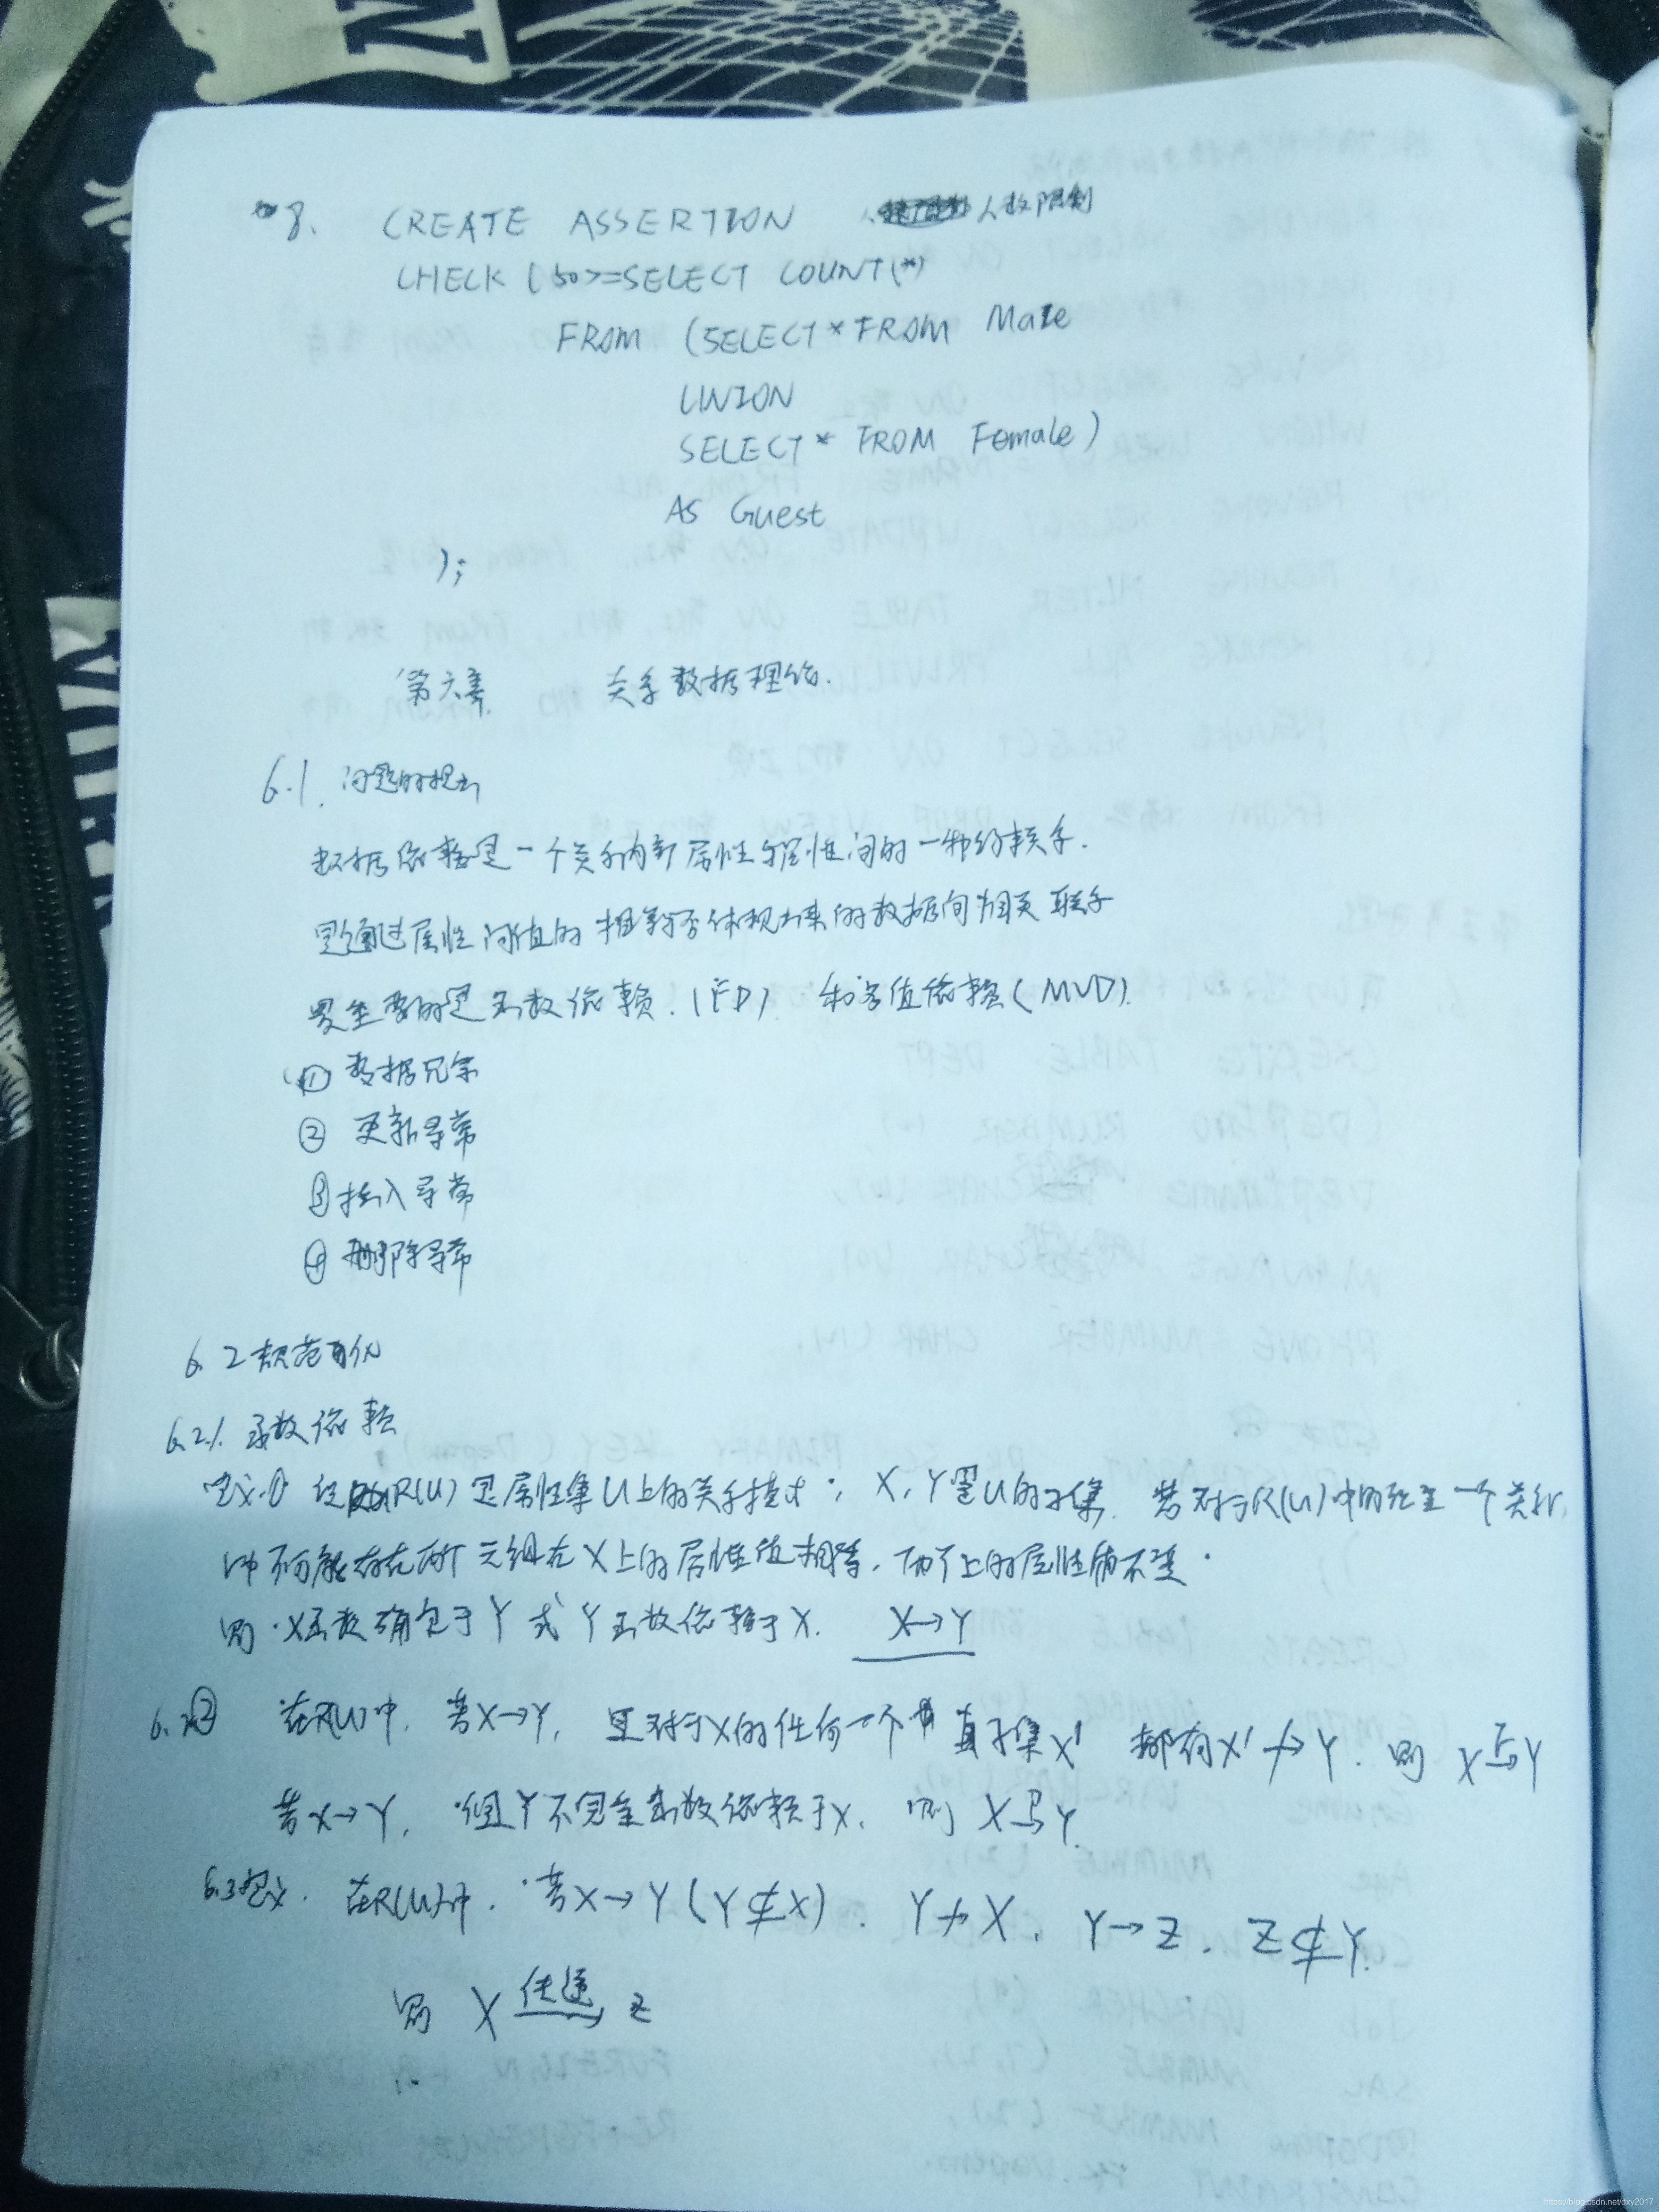 8. CREATE ASSERTION 人数限制
CHECK (50>=SELECT COUNT(*)
FROM (SELECT * FROM Male
UNION
SELECT * FROM Female)
AS Guest
);
第六章 关系数据理论.
6.1. 问题的提出
数据依赖是一个关系内部属性与属性间的一种约束关系.
是通过属性间值的相等与否体现出来的数据间相关联系
最重要的是函数依赖.(FD) 和多值依赖(MVD).
① 数据冗余
② 更新异常
③ 插入异常
④ 删除异常
6.2 规范化
6.2.1. 函数依赖
定义① 设R(U)是属性集U上的关系模式; X,Y是U的子集, 若对于R(U)中的任意一个关系r,
r中不可能存在两个元组在X上的属性值相等,而Y上的属性值不等.
则X函数确定于Y或Y函数依赖于X. X→Y
6.2② 在R(U)中, 若X→Y, 且对于X的任何一个真子集X' 都有X'↛Y. 则 X F→ Y
若X→Y, 但Y不完全函数依赖于X, 则 X P→ Y.
6.3定义. 在R(U)中, 若X→Y(Y⊄X). Y↛X. Y→Z. Z⊄Y.
则 X 传递→ Z
NI
https://blog.csdn.net/dxy2017